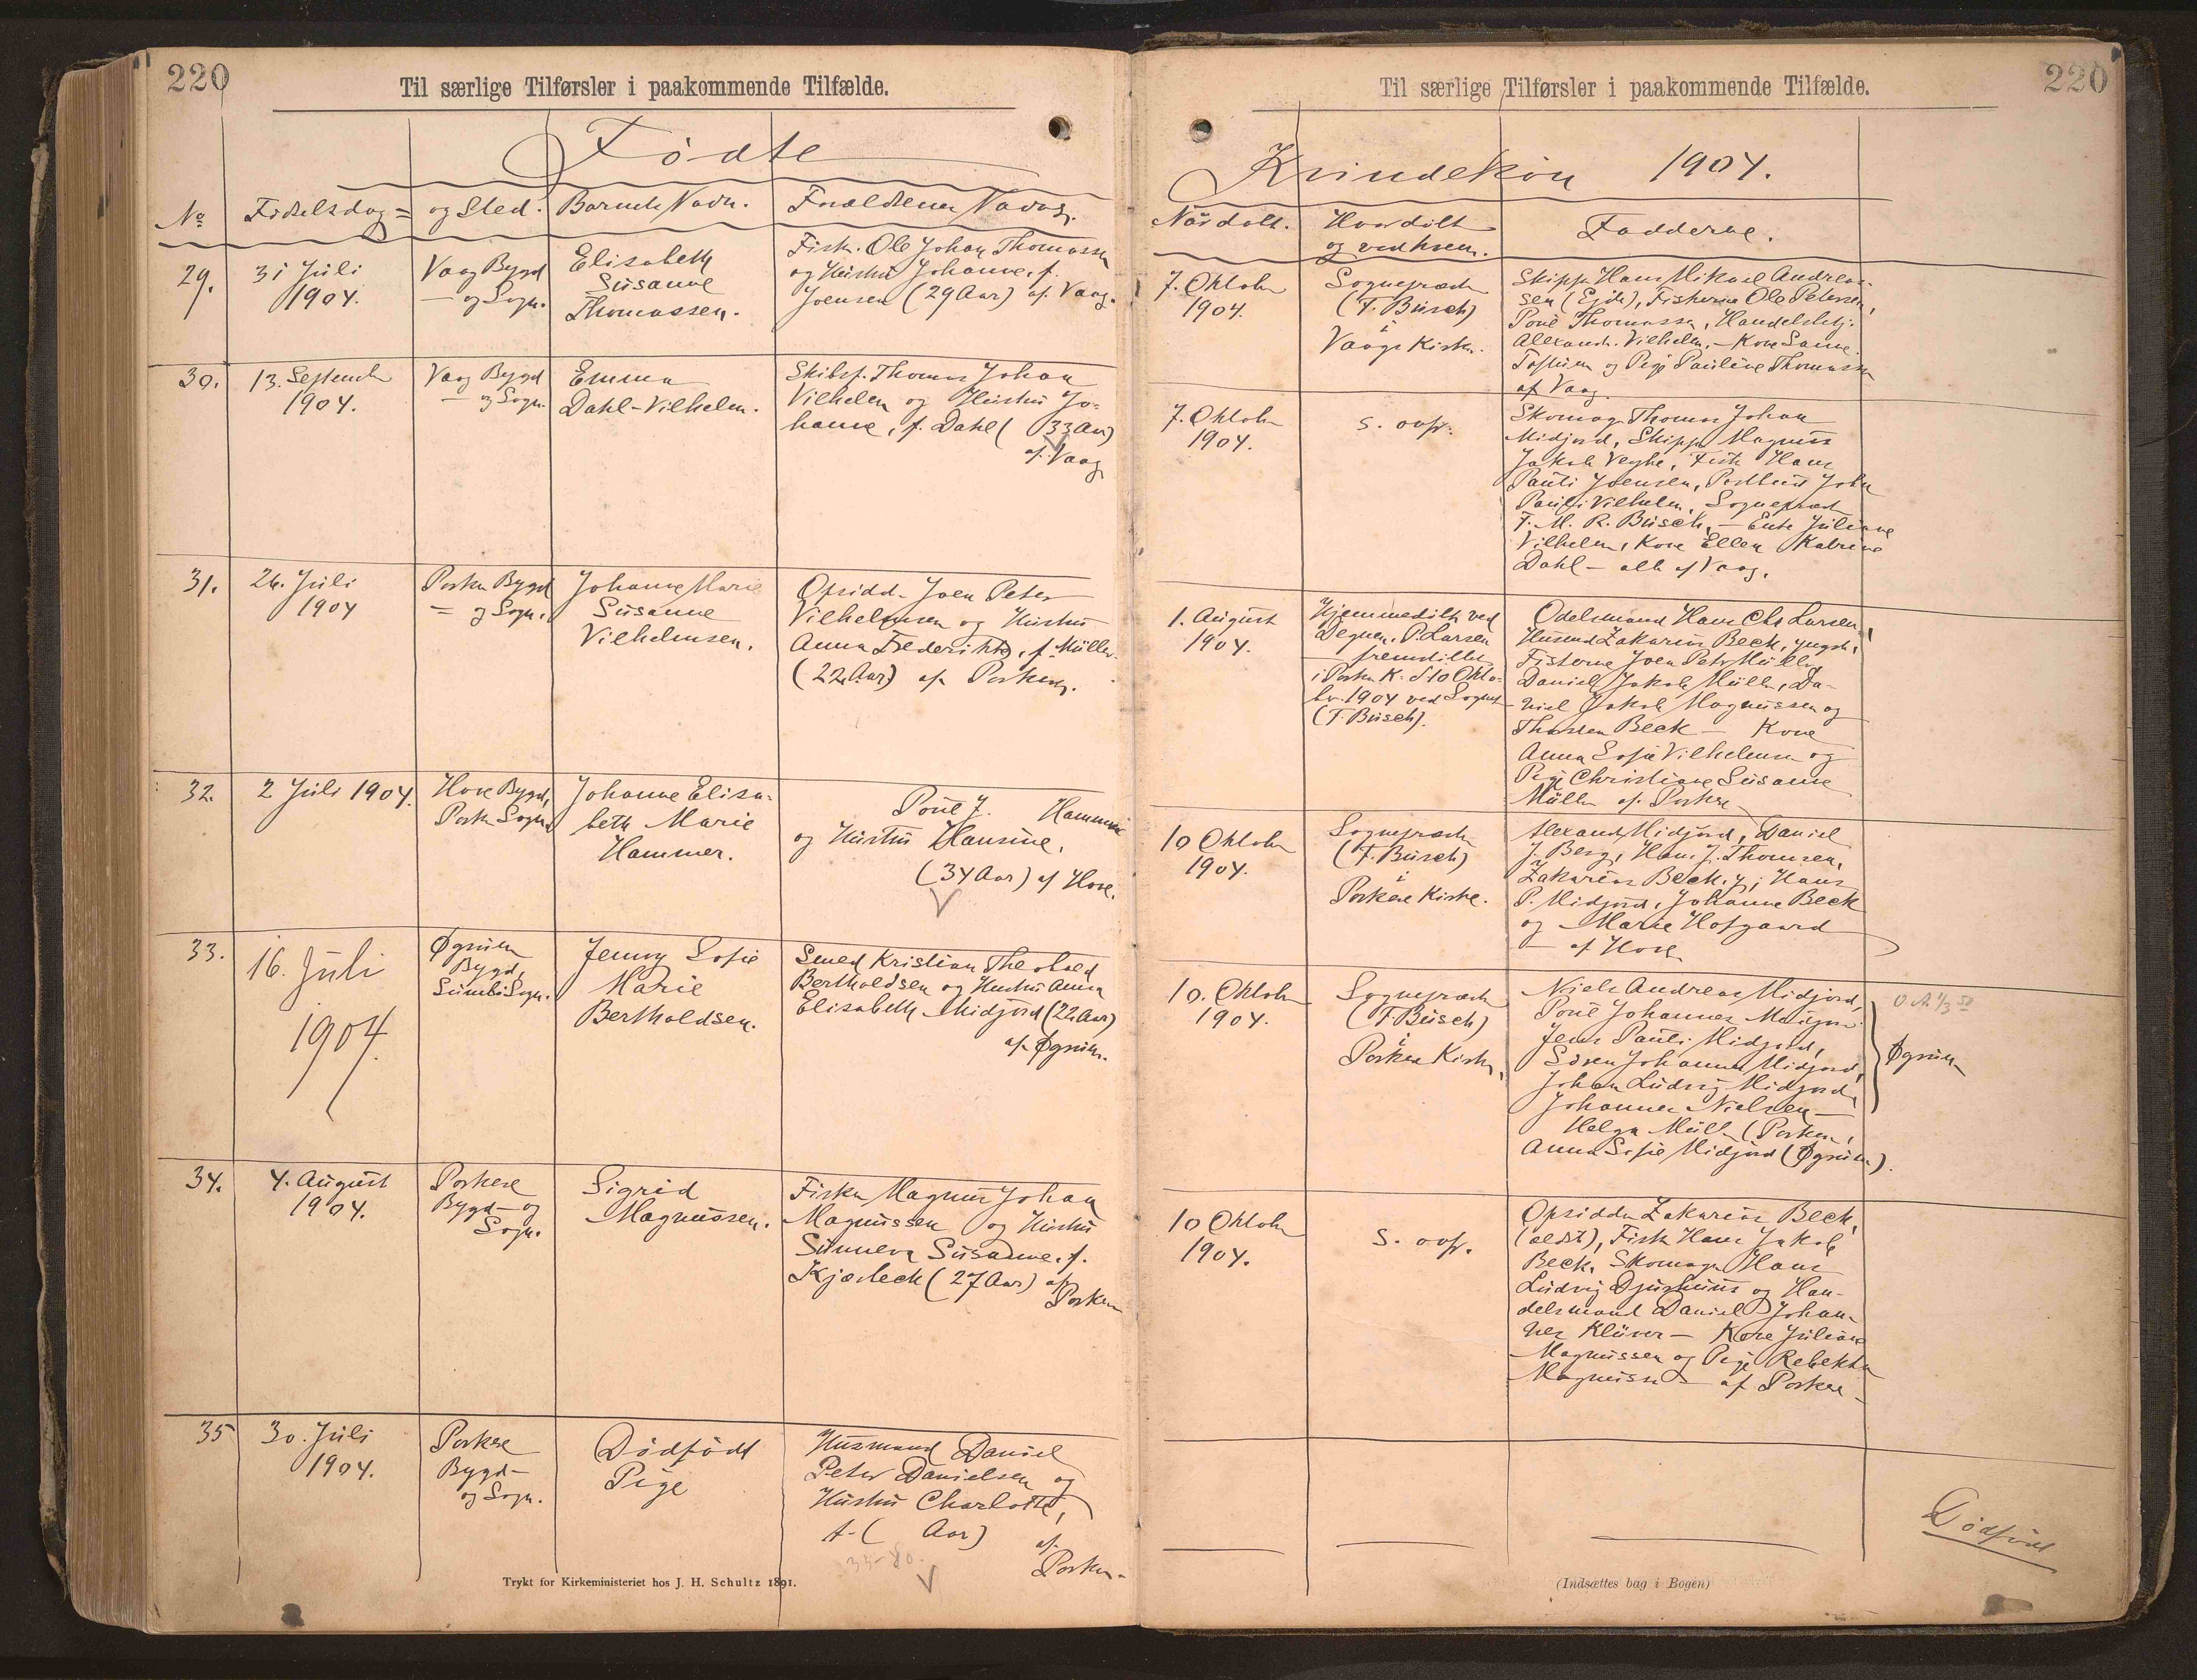 220
Til særlige Tilførsler i paakommende Tilfælde.
Fødte
No
Fødselsdag =
og Sted.
Barnets Navn.
Forældrenes Navne.
29.
31 Juli
1904.
Vaag Bygd
— og Sogn.
Elisabeth
Susanne
Thomassen.
Fisk. Ole Johan Thomassen
og Hustru Johanne, f.
Joensen (29 Aar) af Vaag.
30.
13. September
1904.
Vaag Bygd
— og Sogn.
Emma
Dahl-Vilhelm.
Skibsf. Thomas Johan
Vilhelm og Hustru Jo-
hanne, f. Dahl (33 Aar)
af Vaag
31.
26. Juli
1904
Porkere Bygd
= og Sogn.
Johanne Marie
Susanne
Vilhelmsen.
Opsidd. Joen Peter
Vilhelmsen og Hustru
Anna Frederikke, f. Müller
(22 Aar) af Porkere.
32.
2 Juli 1904.
Hove Bygd,
Porkere Sogn
Johanne Elisa-
beth Marie
Hammer.
Poul J. Hammer
og Hustru Hansine,
(34 Aar) af Hove.
33.
16. Juli
1904.
Øgrum
Bygd,
Sumbø Sogn.
Jenny Sofie
Marie
Bertholdsen.
Smed Kristian Theobald
Bertholdsen og Hustru Anna
Elisabeth Midjord (22 Aar)
af Øgrum.
34.
4. August
1904.
Porkere
Bygd — og
Sogn.
Sigrid
Magnussen.
Fisker Magnus Johan
Magnussen og Hustru
Sunneva Susanne, f.
Kjærbeck (27 Aar) af
Porkere
35
30. Juli
1904.
Porkere
Bygd —
og Sogn.
Dødfødt
Pige
Husmand Daniel
Peter Danielsen og
Hustru Charlotte,
f. ( Aar) af
Porkere
Trykt for Kirkeministeriet hos J. H. Schultz 1891.
220
Til særlige Tilførsler i paakommende Tilfælde.
Kvindekøn 1904.
Når døbt.
Hvor døbt
og ved hvem.
Fadderne.
7. Oktober
1904.
Sognepræst
(F. Busch)
i
Vaags Kirke.
Skipper Hans Mikael Andreas-
sen (Ejde), Fiskerne Ole Petersen,
Poul Thomassen, Handelsbetj.
Alexandr. Vilhelm, — Kone Sanne
og Pige Pauline Thomassen
af Vaag.
7. Oktober
1904.
s. ovf.
Skomag. Thomas Johan
Midjord, Skipper Magnus
Jakob Veyhe, Fisk. Hans
Pauli Joensen, Postbud John
Pauli Vilhelm, Sognepræst
F. M. R. Busch, — Enke Juliane
Vilhelm, Kone Ellen Katrine
Dahl — alle af Vaag.
1. August
1904.
Hjemmedøbt ved
Degnen P. Larsen
— fremstillet
i Porkere K. d. 10 Okto-
ber 1904 ved Sognepr.
(F. Busch).
Odelsmand Hans Chr. Larsen,
Husmd. Zakarias Beck, yngst.,
Fiskerne Joen Peter Müller,
Daniel Jakob Müller, Da-
niel Jakob Magnussen og
Beck — Kone
Anna Sofie Vilhelmsen og
Pige Christiane Susanne
Müller af Porkere
10 Oktober
1904.
Sognepræst
(F. Busch)
i
Porkere Kirke.
Alexand. Midjord, Daniel
J. Berg, Hans J. Thomsen,
Zakarias Beck. y., Hans
P. Midjord, Johanne Beck
og Marie Hofgaard
— af Hove
10. Oktober
1904.
Sognepræst
(F. Busch)
i
Porkere Kirke,
Niels Andreas Midjord,
Poul Johannes Midjord
Jens Pauli Midjord,
Søren Johannes Midjord,
Johan Ludvig Midjord,
Johannes Nielsen —
Helga Müller (Porkere),
Anna Sofie Midjord (Øgrum).
Øgrum
10 Oktober
1904.
s. ovf.
Opsidder Zakarias Beck,
(ældst), Fisk. Hans Jakob
Beck, Skomager Hans
Ludvig Djurhuus og Han-
delsmand Daniel Johan-
nes Klüver — Kone Juliane
Magnussen og Pige Rebekka
Magnussen af Porkere
Dødfødt
(Indsættes bag i Bogen)